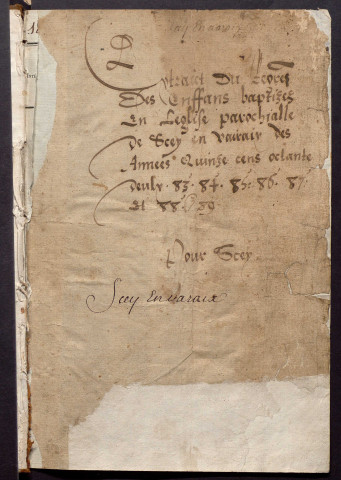 Extraict du
Des Enffans baptizes
En Leglise parochialle
de Scey en varaix des
Annees Quinze cens octante
deulx . 83 . 84 . 85 . 86 . 87 .
Et 88
Pour Scey
Scey En varaix